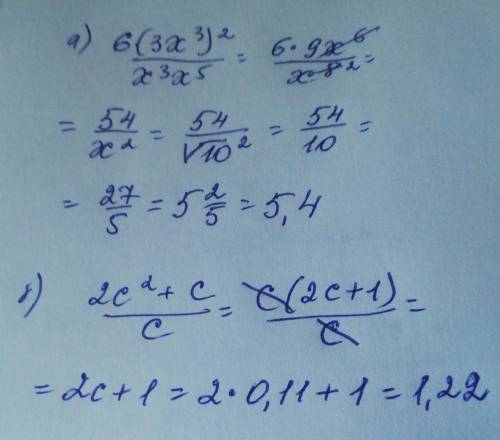 а) 6(3x³)² / x³x⁵ = 6·9x⁶ / x⁸ ² =
= 54 / x² = 54 / √10² = 54 / 10 =
= 27 / 5 = 5 2/5 = 5,4
б) 2c² + c / c = c(2c+1) / c =
= 2c+1 = 2·0,11+1 = 1,22